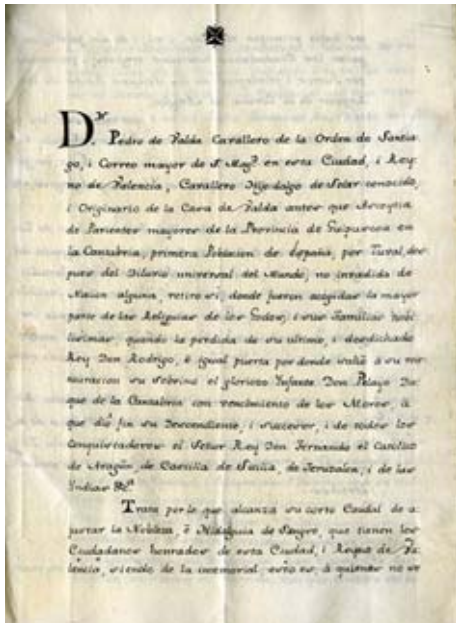 Dⁿ. Pedro de Valda Cavallero de la Orden de Santia
go, i Correo mayor de S. Magᵈ. en esta Ciudad, i Rey
no de Valencia, Cavallero Hijodalgo de Solar conocido,
i Originario de la Casa de Valda antes que
de Parientes mayores de la Provincia de Guipuscoa en
la Cantabria, primera Poblacion de España, por Tubal, des
pues del Diluvio universal del Mundo, no invadida de
Nacion alguna, retiro si, donde fueron acogidas la mayor
parte de las Reliquias de los Godos, i sus Familias nobi
lissimas, quando la perdida de su ultimo, i desdichado
Rey Don Rodrigo, è igual puerta por donde saliò à su res
tauracion su Sobrino el glorioso Infante Don Pelayo Du
que de la Cantabria con vencimiento de los Moros, à
que diò fin su Descendiente, i sucessor, i de todos los
Conquistadores el Señor Rey Don Fernando el Catolico
de Aragòn, de Castilla de Sicilia, de Jerusalen, i de las
Indias &cª.
Trata por lo que alcanza su corto Caudal de a
justar la Nobleza, ò Hidalguia de Sangre, que tienen los
Ciudadanos honrados de esta Ciudad, i Reyno de Va
lencia, siendo de la inmemorial estos es, à quienes no se